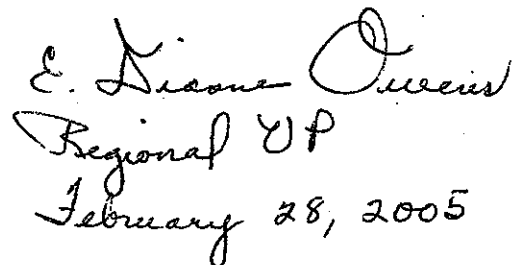 E. Dianne Owens
Regional VP
February 28, 2005